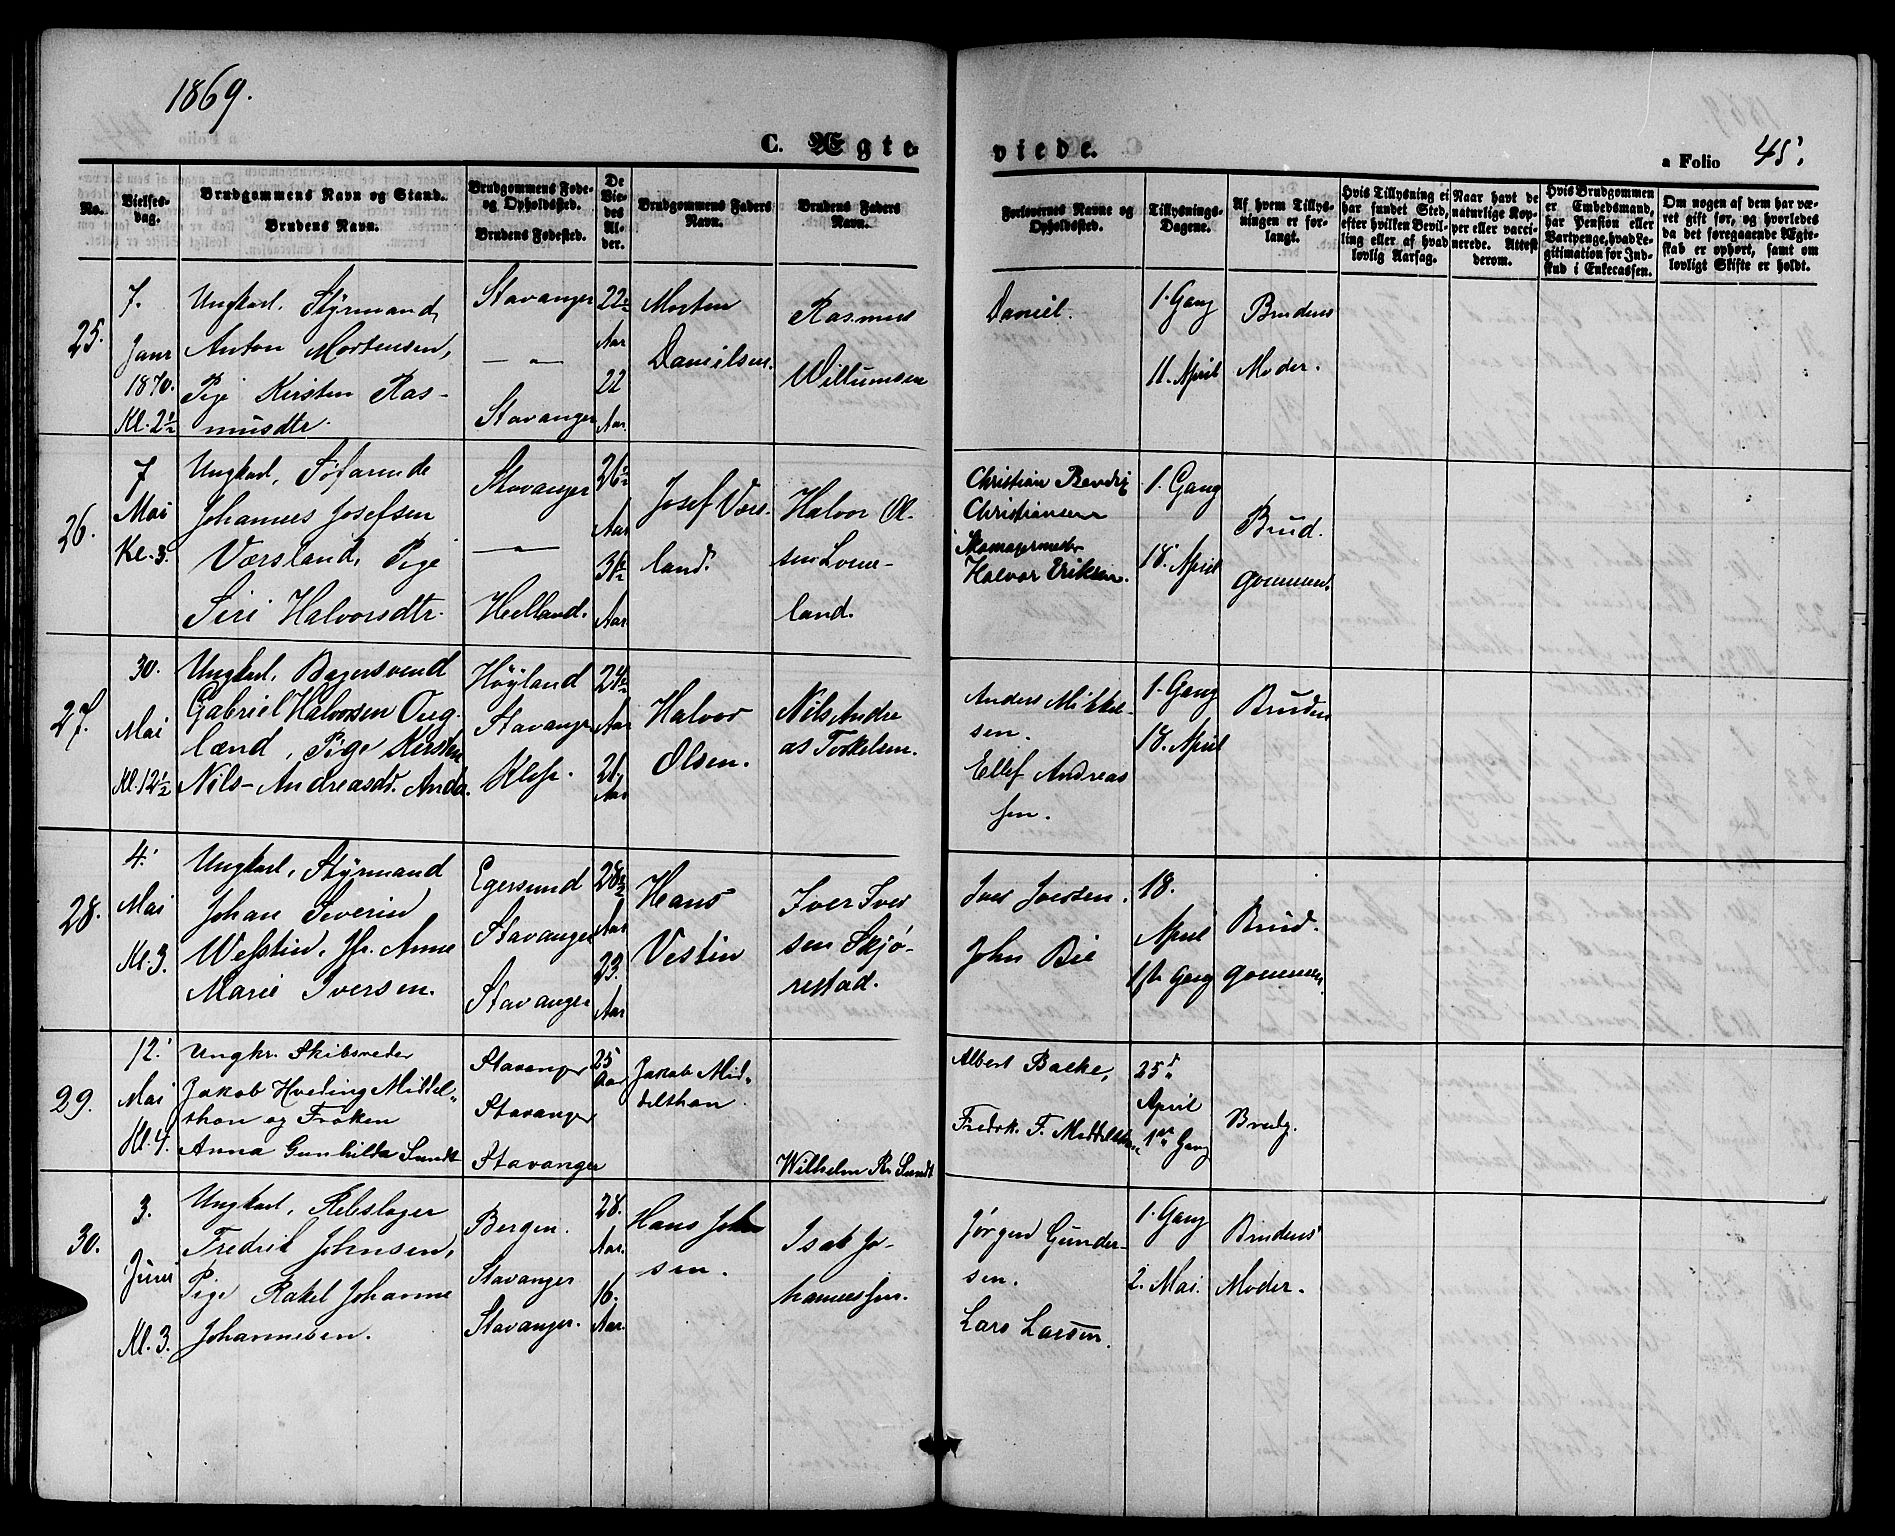 1869.
C. Ægte
viede.
a Folio 45.
No.
Vielses-
dag.
Brudgommens Navn og Stand.
Brudens Navn.
Brudgommens Føde-
og Opholdssted.
Brudens Fødested.
De
Vie-
des
Al-
der.
Brudgommens Faders
Navn.
Brudens Faders
Navn.
Forlovernes Navne og
Opholdssted.
Tillysnings-
Dagene.
Af hvem Tillys-
ningen er for-
langt.
Hvis Tillysning ei
har fundet Sted,
efter hvilken Bevil-
ling eller af hvad
lovlig Aarsag.
Naar havt de
naturlige Kop-
per eller vacci-
nerede. Attest
derom.
Hvis Brudgommen
er Embedsmand,
har Pension eller
Vartpenge, hvad Le-
gitimation for Ind-
skud i Enkecassen.
Om nogen af dem har væ-
ret gift før, og hvorledes
da det foregaaende Ægte-
skab er ophørt, samt om
lovligt Skifte er holdt.
25.
7.
Janr
1870.
Kl. 2½
Ungkarl, Styrmand
Anton Mortensen,
Pige Kirsten Ras-
musdtr.
Stavanger
— " —
Stavanger
22½
Aar
22
Aar.
Morten
Danielsen.
Rasmus
Willumsen
Daniel.
1. Gang
11. April
Brudens
Moder.
26.
7
Mai
Kl. 3.
Ungkarl, Søfarende
Johannes Josefsen
Værsland, Pige
Siri Halvorsdtr.
Stavanger
— " —
Helland.
26½
Aar
Aar
Josef Værs-
land.
Halvor Ol-
sen Lome-
land.
Christian Bendix
Christiansen
Skomagermester
Halvor Eriksen.
1. Gang
18. April
Brud-
gommens
27.
30.
Mai
Kl. 12½
Ungkarl, Bagersvend
Gabriel Halvorsen Aug-
land, Pige Kirsten
Nils-Andreasd. Anda.
Høyland
Stavanger
Klep.
24½
Aar
21
Aar
Halvor
Olsen.
Nils Andre
as Torkelsen.
Anders Mikkel-
sen.
Ellef Andreas
sen.
1. Gang
18. April
Bruden
28.
4.
Mai
Kl. 3.
Ungkarl, Styrmand
Johan Severin
Westin, Jfr. Anne
Marie Iversen.
Egersund
Stavanger
Stavanger
28½
Aar
23.
Aar
Hans
Vestin
Iver Iver
sen Skjø-
restad.
Iver Iversen.
John Bie
18.
April
1ste Gang
Brud-
gommen.
29.
12.
Mai
Kl. 4.
Ungkr. Skibsreder
Jakob Hveding Middel-
thon og Frøken
Anna Gunhilda Sundt
Stavanger
Stavanger
Stavanger
25
Aar
Jakob Mid-
delthon.
Wilhelm R. Sundt
Albert Balke,
Fredrk. F. Middelthon
25d
April
1ste Gang
Brudg.
30.
3.
Juni
Kl. 3.
Ungkarl, Rebslager
Fredrik Johnsen,
Pige Rakel Johanne
Johannesen.
Bergen.
Stavanger
Stavanger.
28.
Aar.
16.
Aar.
Hans John
sen.
Isak Jo-
hannessen.
Jørgen Gunder-
sen.
Lars Larsen.
1. Gang
2. Mai.
Brudens
Moder.